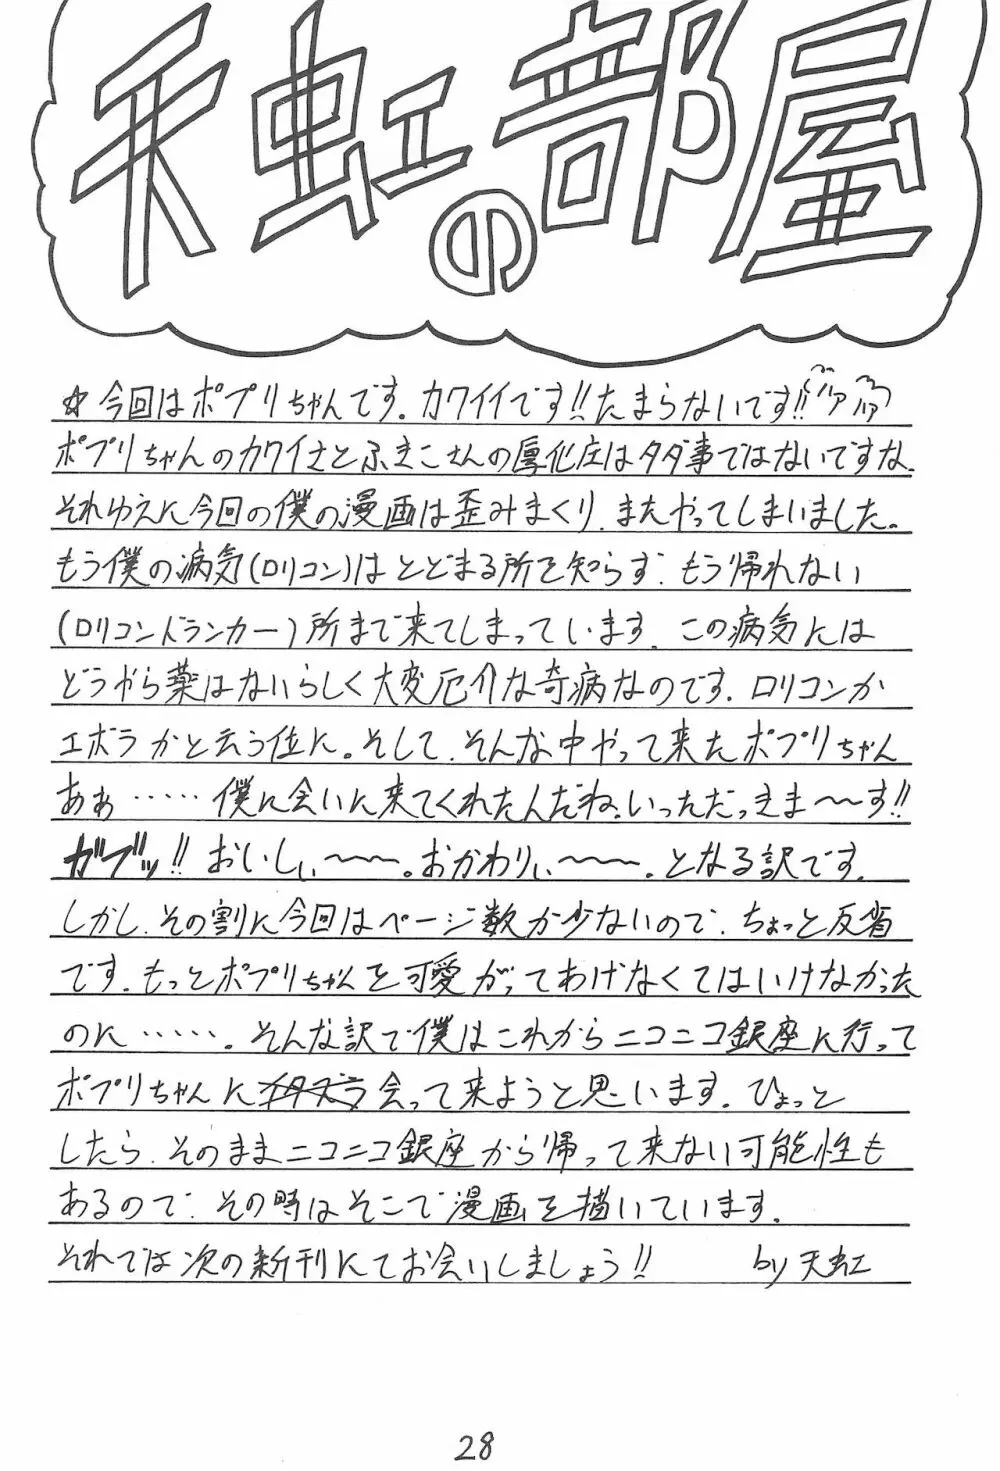 天虹の部屋
☆今回はポプリちゃんです。カワイイです!!たまらないです!!ハァハァ
ポプリちゃんのカワイさとふきこさんの厚化庄はタダ事ではないですな。
それゆえに今回の僕の漫画は歪みまくり、またやってしまいました。
もう僕の病気(ロリコン)はとどまる所を知らず、もう帰れない
(ロリコンドランカー)所まで来てしまっています。この病気には
どうやら薬はないらしく大変厄介な奇病なのです。ロリコンか
エボラかと云う位に。そして、そんな中やって来たポプリちゃん
あぁ……僕に会いに来てくれたんだね、いっただっきま〜〜す!!
ガブッ!!おいしぃ〜〜〜。おかわりぃ〜〜〜。となる訳です。
しかし、その割に今回はページ数が少ないので、ちょっと反省
です。もっとポプリちゃんを可愛がってあげなくてはいけなかった
のに……。そんな訳で僕はこれからニコニコ銀座に行って
ポプリちゃんに会って来ようと思います。ひょっと
したら、そのままニコニコ銀座から帰って来ない可能性も
あるので、その時はそこで漫画を描いています。
それでは次の新刊にてお会いしましょう!! by 天虹
28